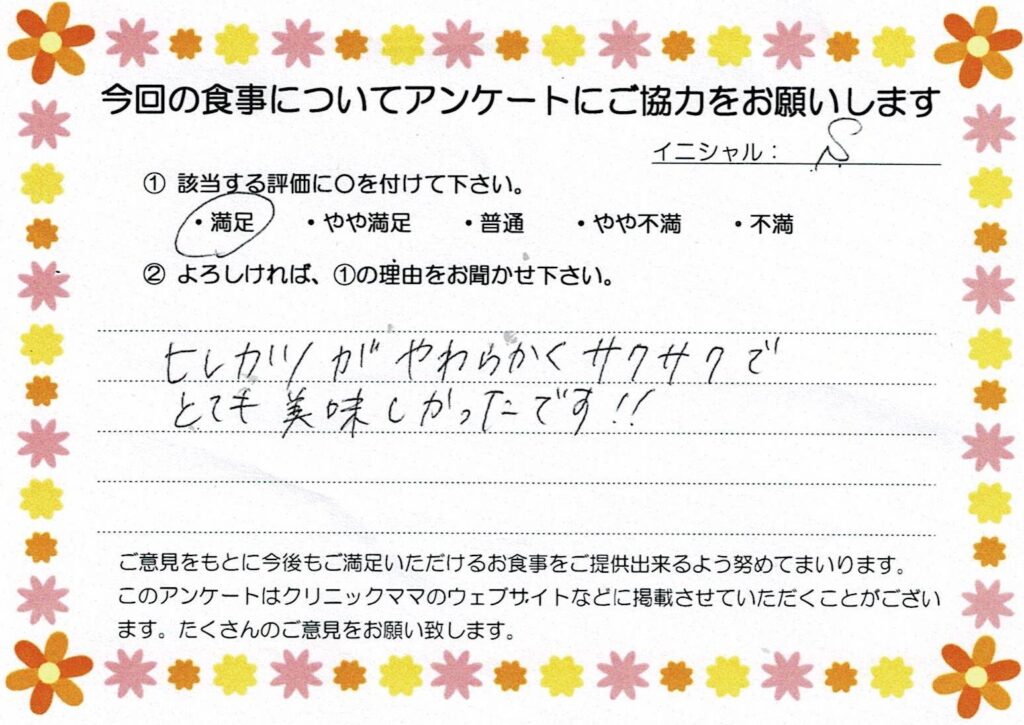 今回の食事についてアンケートにご協力をお願いします
イニシャル： S
① 該当する評価に〇を付けて下さい。
・満足 ・やや満足 ・普通 ・やや不満 ・不満
② よろしければ、①の理由をお聞かせ下さい。
ヒレカツがやわらかくサクサクで
とても美味しかったです!!
ご意見をもとに今後もご満足いただけるお食事をご提供出来るよう努めてまいります。
このアンケートはクリニックママのウェブサイトなどに掲載させていただくことがござい
ます。たくさんのご意見をお願い致します。